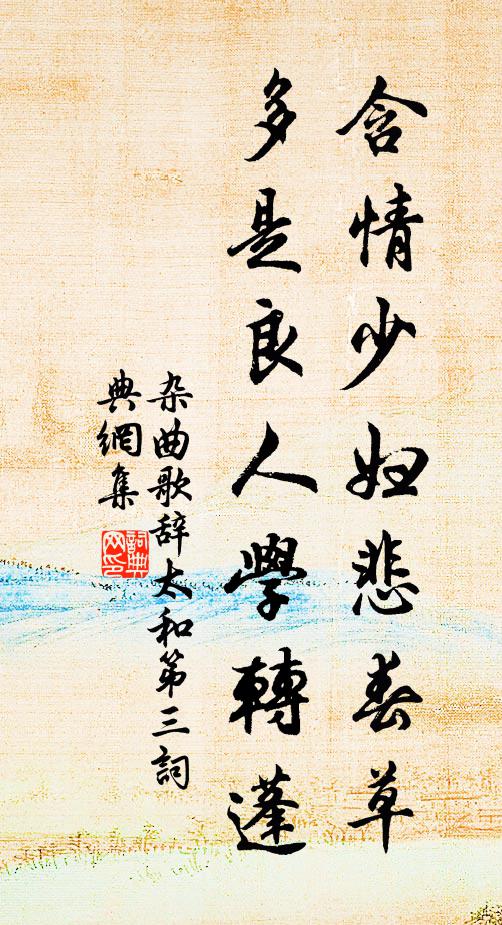 含情少妇悲春草
多是良人學轉蓬
杂曲歌辞太和第三詞
典網集
詞典
网印